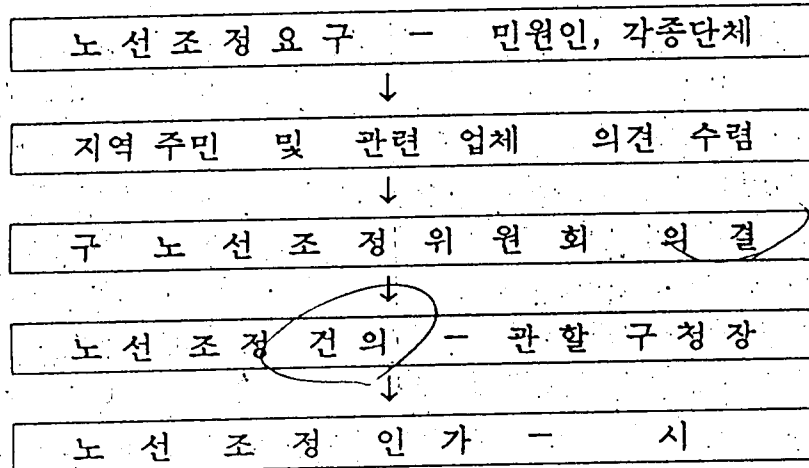 노선조정요구 - 민원인, 각종단체
↓
지역 주민 및 관련 업체 의견 수렴
↓
구 노선조정위원회 의결
↓
노선조정 건의 - 관할 구청장
↓
노선조정인가 - 시